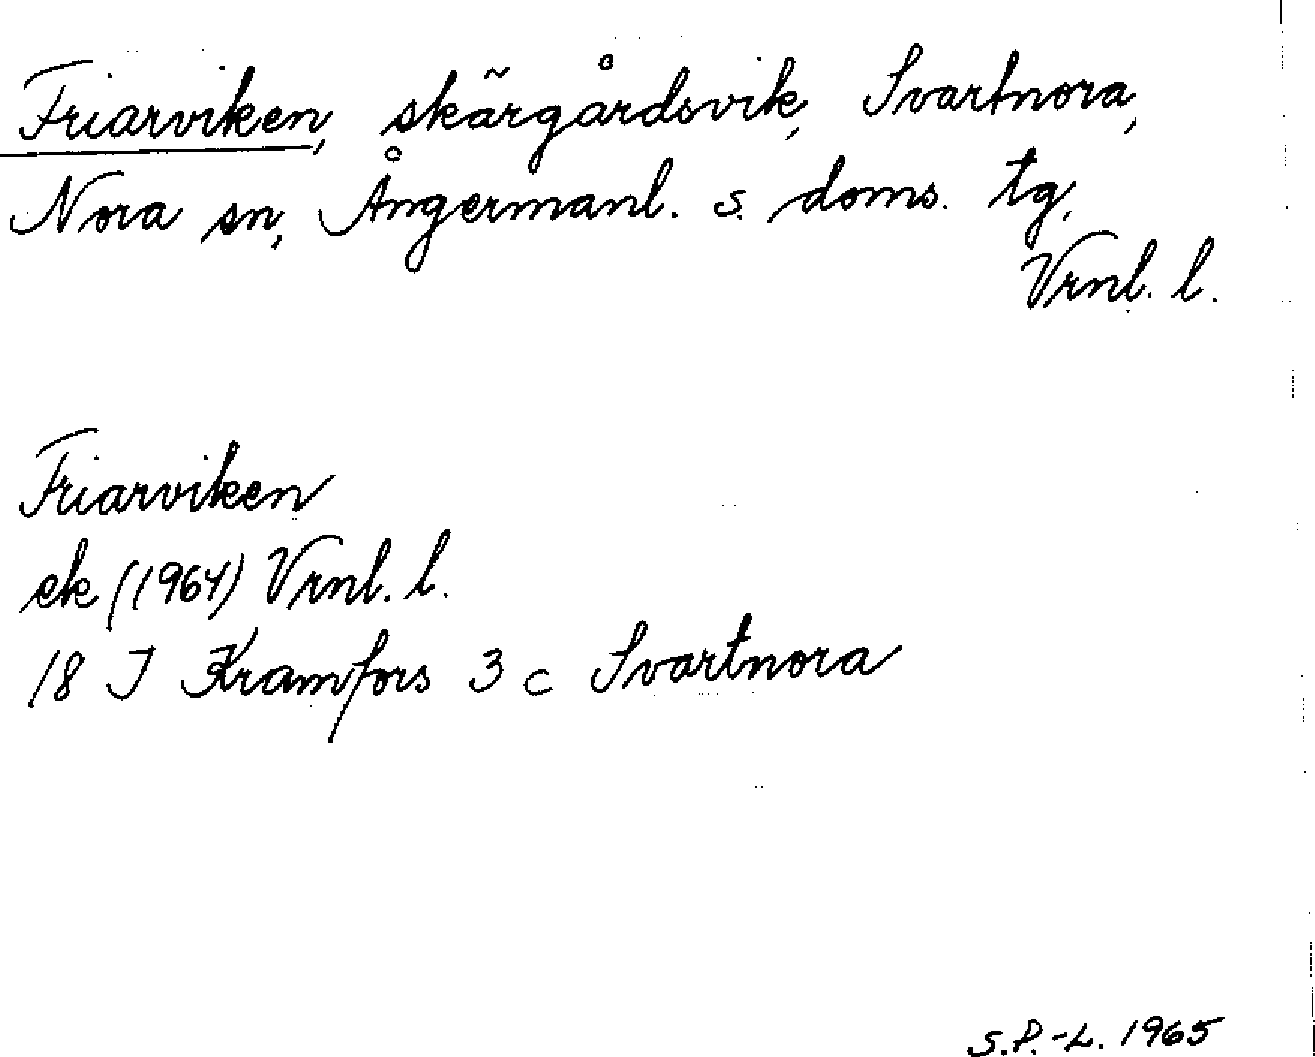 Friarviken, skärgårdsvik, Svartnora,
Nora sn, Ångermanl. s. doms. tg.
Vrnl. l.
Friarviken
ek (1964) Vrnl. l.
18 J Kramfors 3 c Svartnora
S.P.-L. 1965